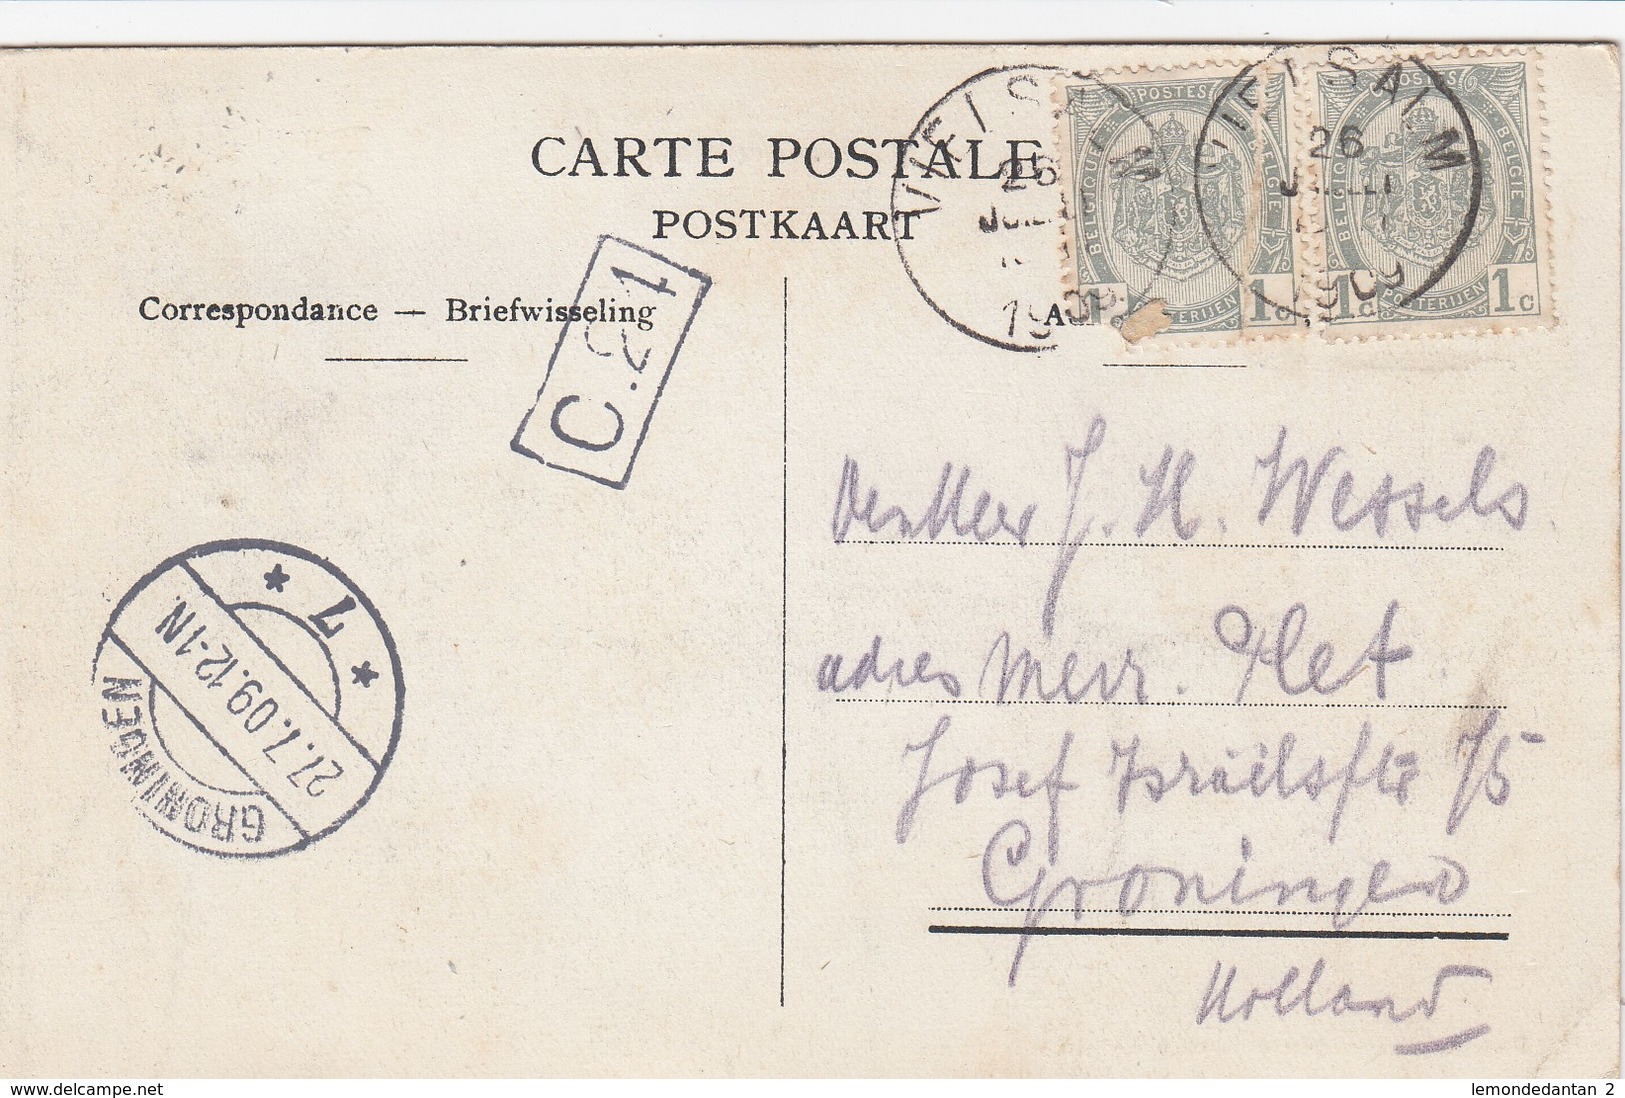 CARTE POSTALE
POSTKAART
Correspondance — Briefwisseling
C.21
VIELSALM
26
JUILLET
1909
VIELSALM
26
JUILLET
1909
POSTES
BELGIQUE BELGIE
POSTERIJEN
1c 1c
POSTES
BELGIQUE BELGIE
POSTERIJEN
1c 1c
J. H. Wessels.
adres Mevr. Flet
Josef Israëlsstr 75
Groningen
Holland
* 7 *
27.7.09.12-1N.
GRONINGEN
www.delcampe.net
lemondedantan 2